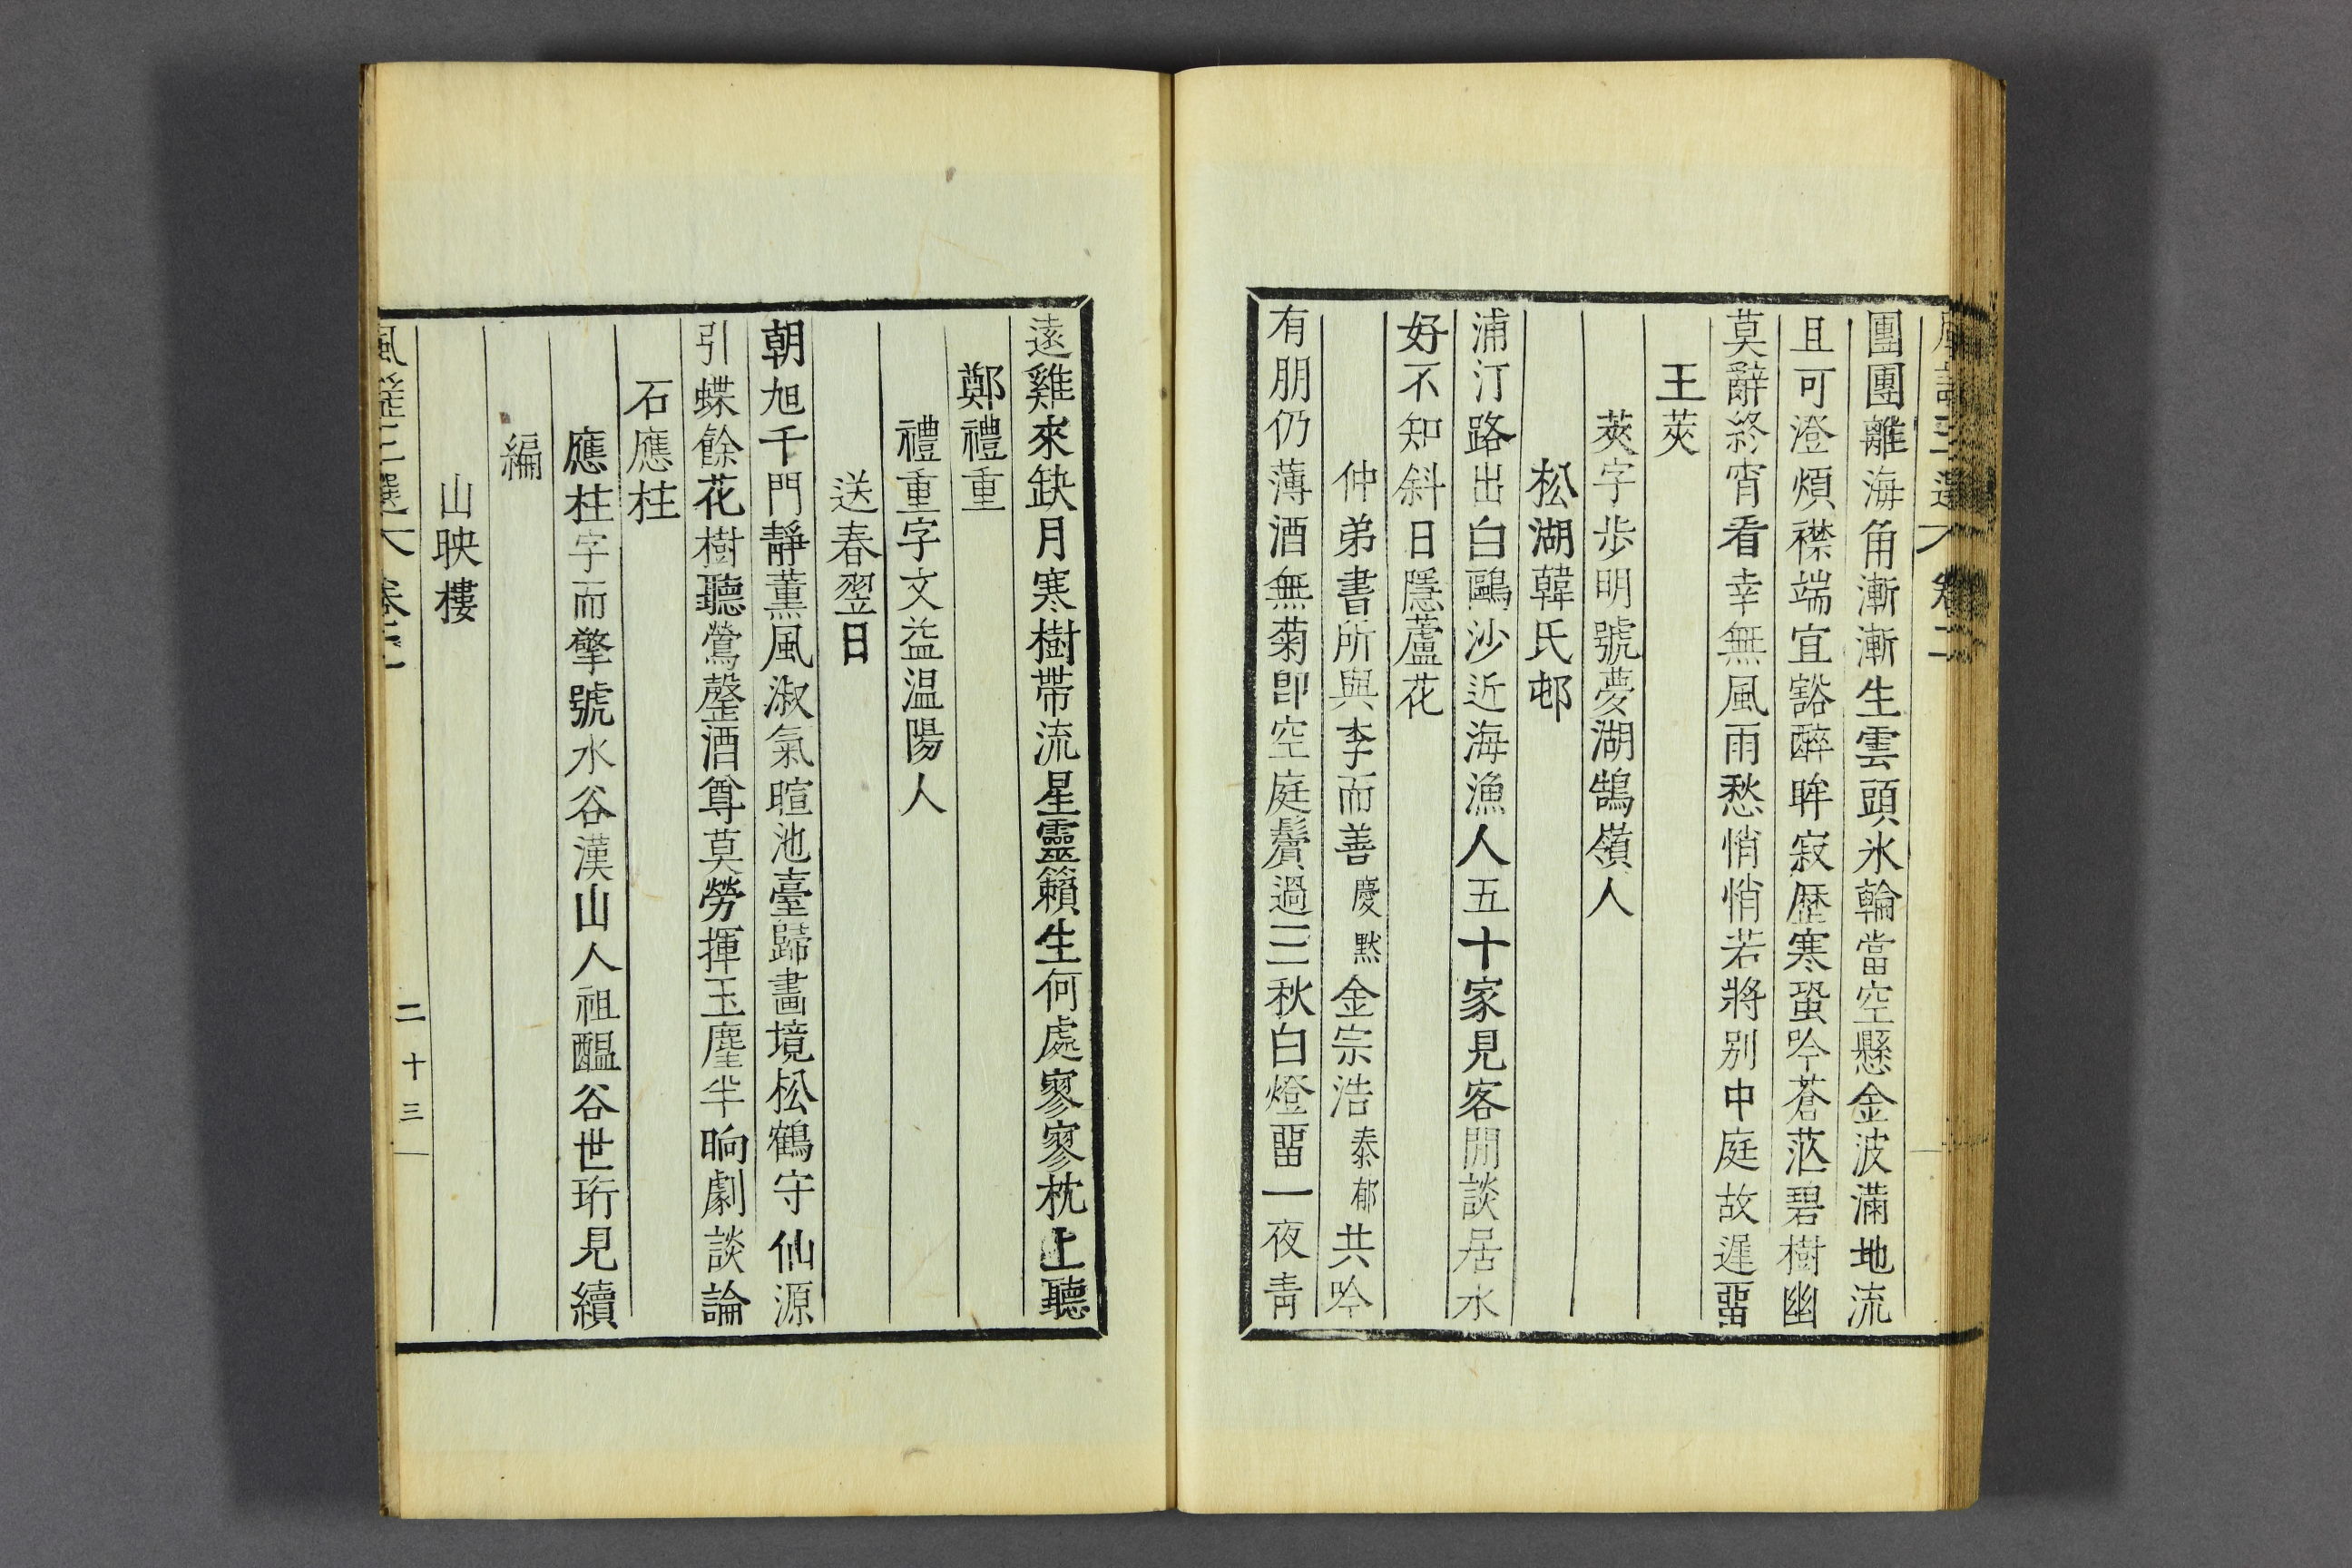 團團離海角漸漸生雲頭氷輪當空懸金波滿地流
且可澄煩襟端宜豁醉眸寂歷寒蛩吟蒼茫碧樹幽
莫辭終宵看幸無風雨愁悄悄若將別中庭故遲畱
王莢
莢字步明號夢湖鵠嶺人
松湖韓氏邨
浦汀路出白鷗沙近海漁人五十家見客閒談居水
好不知斜日隱蘆花
仲弟書所與李而善慶黙金宗浩泰郁共吟
有朋仍薄酒無菊卽空庭鬢過三秋白燈畱一夜靑
遠雞來缺月寒樹帶流星靈籟生何處寥寥枕上聽
鄭禮重
禮重字文益温陽人
送春翌日
朝旭千門靜薰風淑氣暄池臺歸畵境松鶴守仙源
引蝶餘花樹聽鶯罄酒尊莫勞揮玉麈半晌劇談論
石應柱
應柱字而擎號水谷漢山人祖醞谷世珩見續
編
山映樓
風謠三選 卷二
二十三